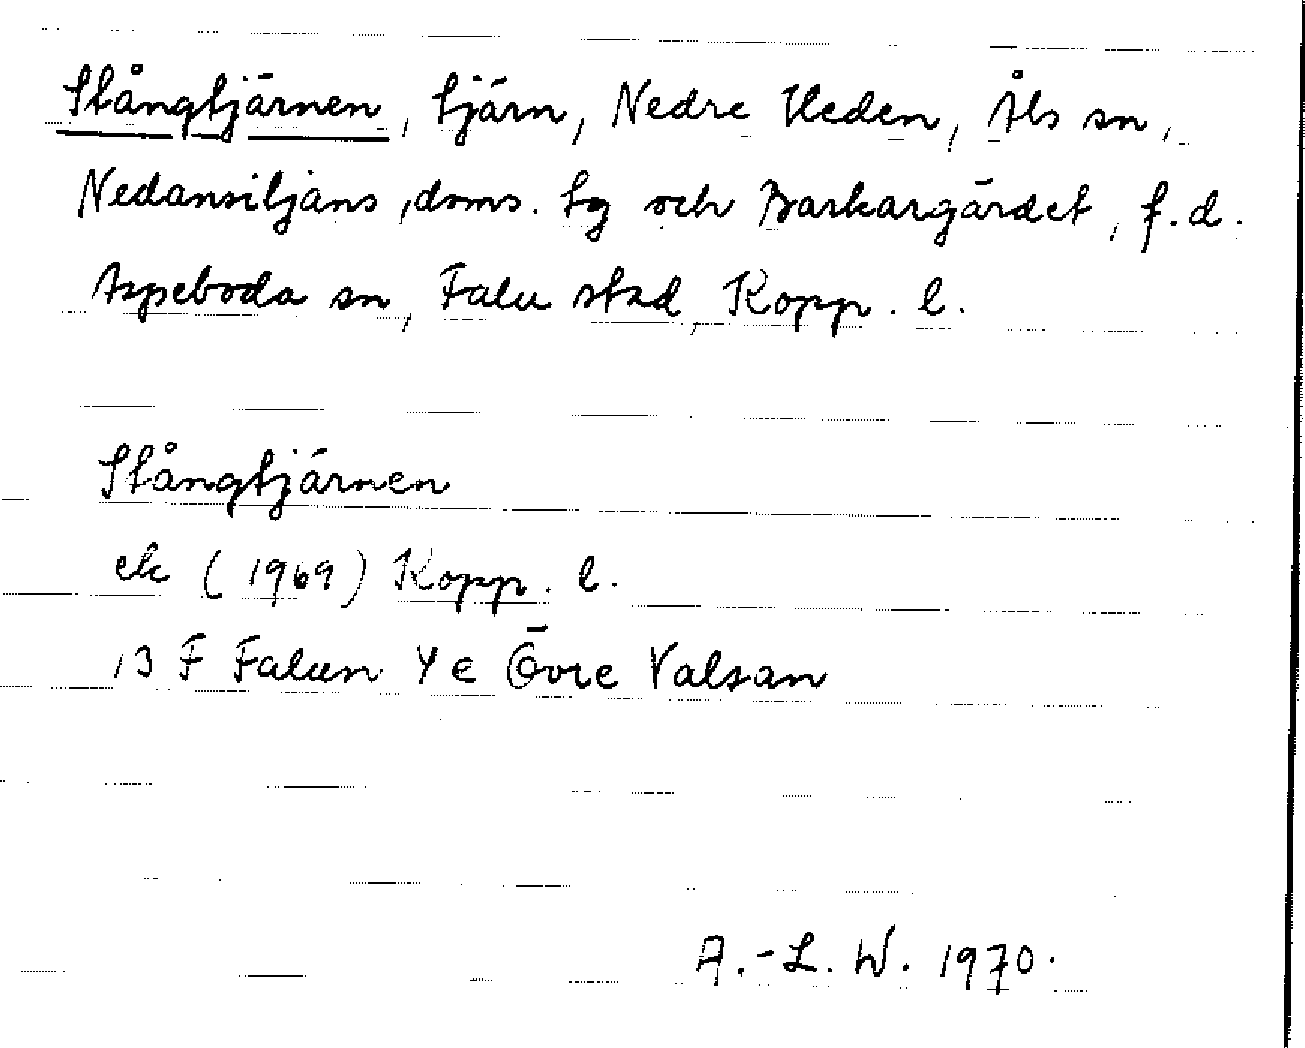 Stångtjärnen, tjärn, Nedre Heden, Åls sn,
Nedansiljans, doms. tg och Barkargärdet, f.d.
Aspeboda sn, Falu stad, Kopp. l.
Stångtjärnen
ek (1969) Kopp. l.
13 F Falun 4 e Övre Valsan
A.-L. W. 1970.